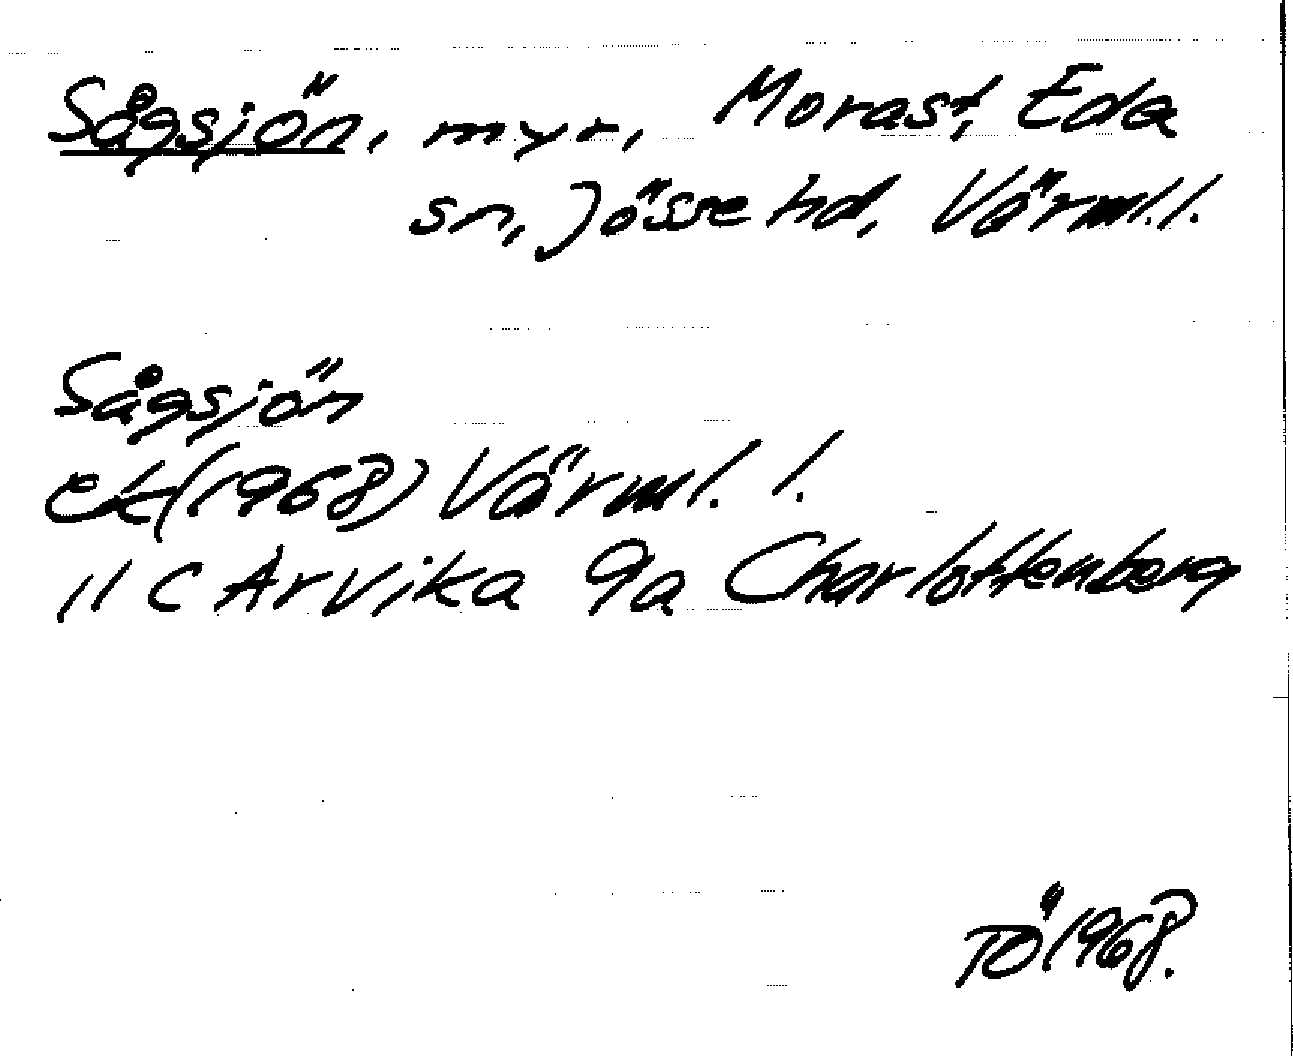 Sågsjön, myr, Morast, Eda
sn, Jösse hd, Värml.l.
Sågsjön
ek(1968) Värml. l.
11 C Arvika 9a Charlottenberg
TÖ 1968.